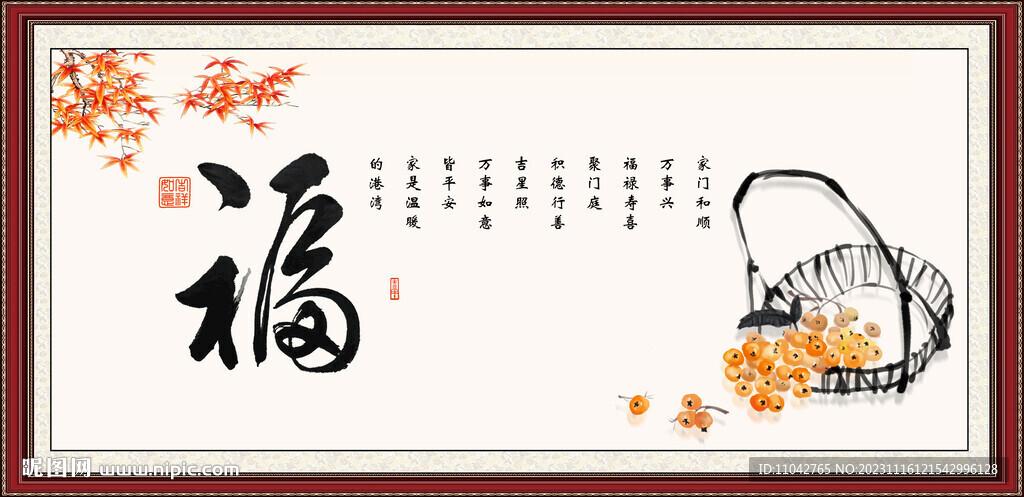 家门和顺
万事兴
福禄寿喜
聚门庭
积德行善
吉星照
万事如意
皆平安
家是温暖
的港湾
福
吉祥如意
昵图网 www.nipic.com
ID:11042765 NO:20231116121542996128